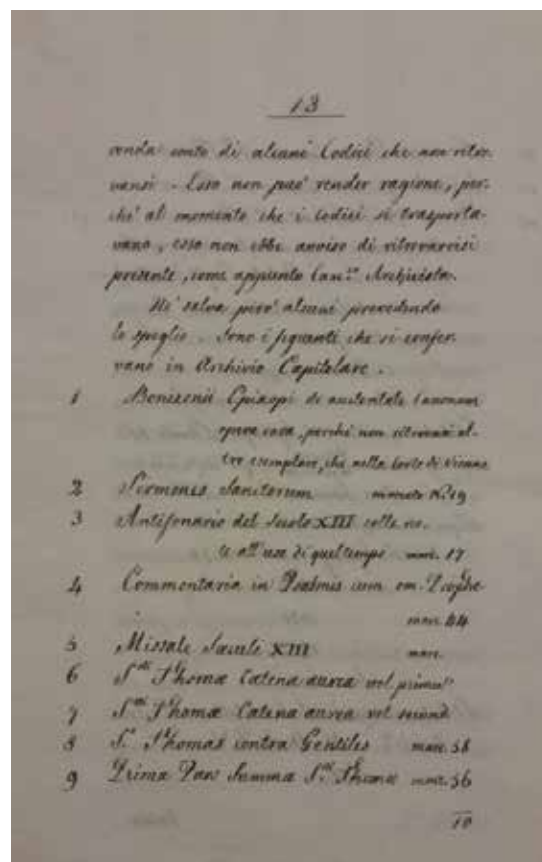 13
renda conto di alcuni Codici che non ritro-
vansi. Esso non può render ragione, per-
chè al momento che i codici si trasporta-
vano, esso non ebbe avviso di ritrovarvisi
presente, come appunto Can.co Archivista.
Ne salvò però alcuni prevedendo
lo spoglio. Sono i seguenti che si conser-
vano in Archivio Capitolare.
1 Bonizonii Episcopi de auctoritate Canonum
opera rara, perchè non ritrovasi al-
tro esemplare, che nella Corte di Vienna
2 Sermones Sanctorum N.º 19
3 Antifonario del Secolo XIII colle no-
te all'uso di quel tempo num. 17
4 Commentaria in Psalmis cum
num. 44
5 Missale Saeculi XIII num.
6 S.ti Thomæ Catena aurea vol. primu
7 S.ti Thomæ Catena aurea vol. second
8 S. Thomas contra Gentiles num. 58
9 Prima Pars Summa S.ti Thomæ num. 56
10